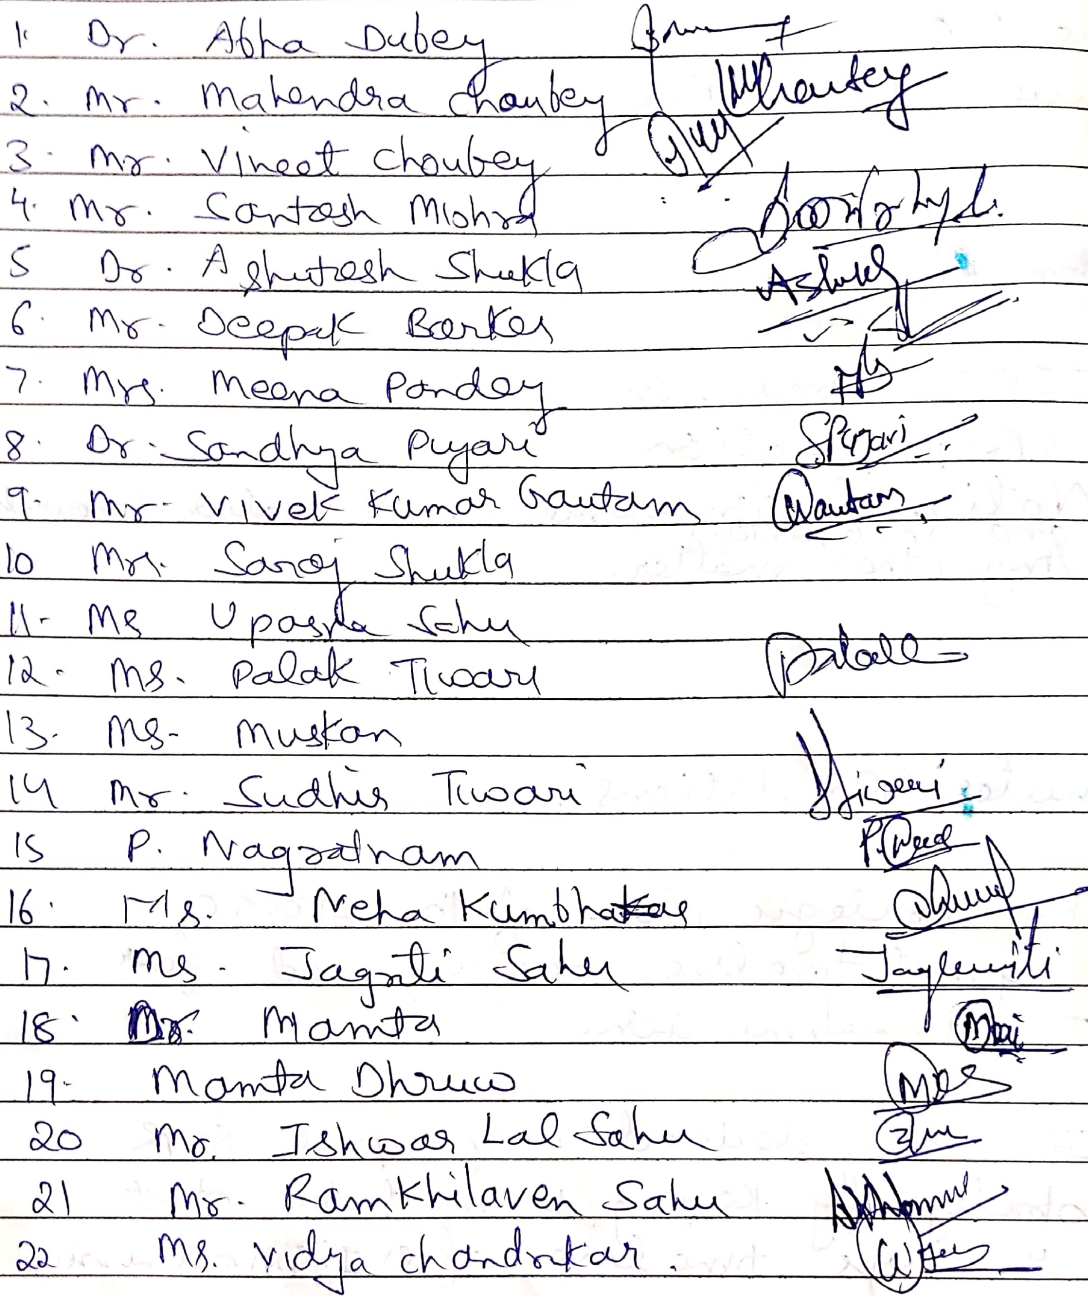 1. Dr. Abha Dubey
2. Mr. Mahendra Choubey Choubey
3. Mr. Vineet Choubey
4. Mr. Santosh Mishra
5 Dr. Ashutosh Shukla Ashu
6. Mr. Deepak
7. Mrs. Meena Pandey
8. Dr. Sandhya Pujari SPujari
9. Mr. Vivek Kumar Gautam Gautam
10 Mrs. Saroj Shukla
11- Ms Upasna Sahu
12. Ms. Palak Tiwari Palak
13. Ms- Muskan
14 Mr. Sudhir Tiwari Tiwari
15 P. Nagratnam
16. Ms. Neha Kumbhakar
17. Ms. Jagrti Sahu
18. Mamta
19- Mamta Dhruw
20 Mr. Ishwar Lal Sahu
21 Mr. Ramkhilaven Sahu
22 Ms. Vidya Chandrakar.